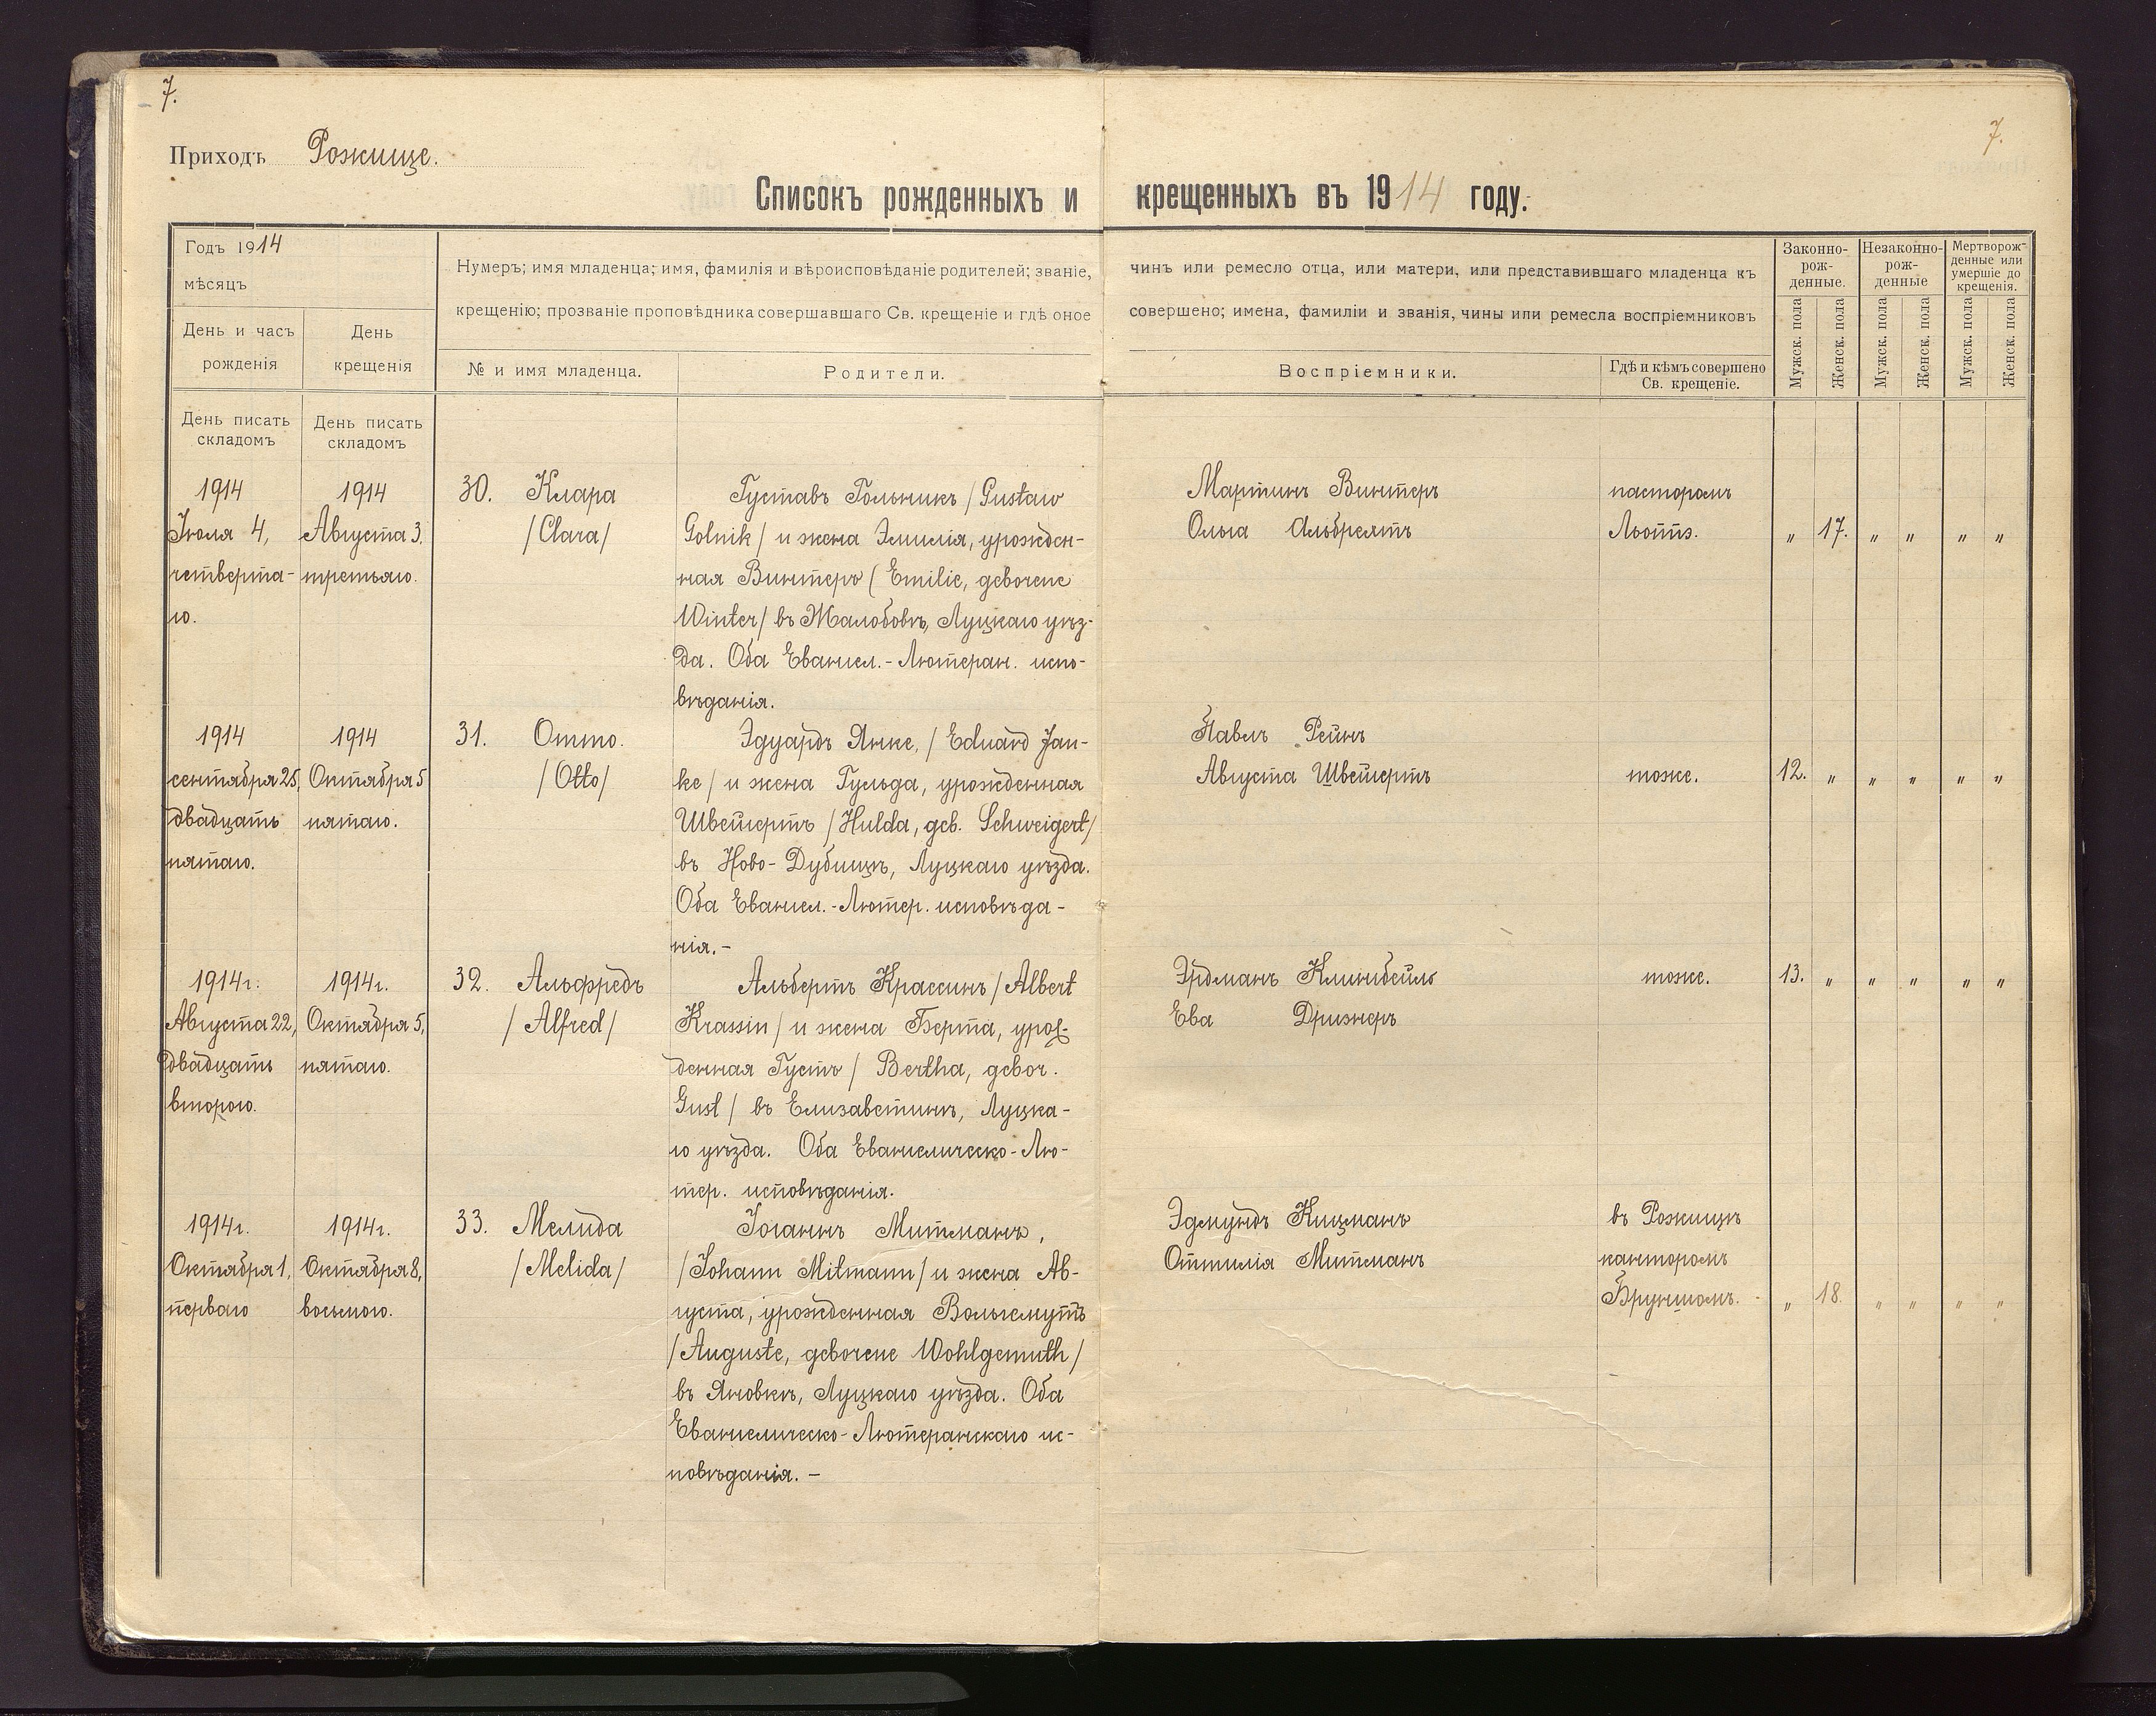 7.
7.
Приходъ Рожище.
Списокъ рожденныхъ и крещенныхъ въ 1914 году.
Годъ 1914
мѣсяцъ
День и часъ
рожденія
День
крещенія
Нумеръ; имя младенца; имя, фамилія и вѣроисповѣданіе родителей; званіе, чинъ или ремесло отца, или матери, или представившаго младенца къ
крещенію; прозваніе проповѣдника совершавшаго Св. крещеніе и гдѣ оное совершено; имена, фамиліи и званія, чины или ремесла воспріемниковъ
№ и имя младенца.
Родители.
Воспріемники.
Гдѣ и кѣмъ совершено
Св. крещеніе.
Законно-
рож-
денные.
Незаконно-
рож-
денные
Мертворож-
денные или
умершіе до
крещенія.
Мужск. пола
Женск. пола
Мужск. пола
Женск. пола
Мужск. пола
Женск. пола
День писать
складомъ
День писать
складомъ
1914
Іюля 4,
четверта-
го.
1914
Августа 3,
третьяго.
30. Клара
/Clara/
Густавъ Гольникъ /Gustaw
Golnik/ и жена Эмилія, урожден-
ная Винтеръ (Emilie, geborene
Winter/ въ Жалобовѣ, Луцкаго уѣз-
да. Оба Евангел.-Лютеран. испо-
вѣданія.
Мартинъ Винтеръ
Ольга Альбрехтъ
пасторомъ
Льоттз.
" 17. " " " "
1914
сентября 25,
двадцать
пятаго.
1914
Октября 5
пятаго.
31. Отто.
/Otto/
Эдуардъ Янке, /Eduard Jan-
ke/ и жена Гульда, урожденная
Швейгертъ /Hulda, geb. Schweigert/
въ Ново-Дубищѣ, Луцкаго уѣзда.
Оба Евангел.-Лютер. исповѣда-
нія.-
Павлъ Рейнъ
Августа Швейгертъ
тоже.
12. " " " " "
1914г.
Августа 22,
двадцать
второго.
1914г.
Октября 5,
пятаго.
32. Альфредъ
/Alfred/
Альбертъ Крассинъ /Albert
Krassin/ и жена Берта, урож-
денная Густъ / Bertha, gebor.
Gust/ въ Елизаветинѣ, Луцка-
го уѣзда. Оба Евангелическо-Лю-
тер. исповѣданія.
Эрдманъ Клингбейлъ
Ева Дризнеръ
тоже.
13. " " " " "
1914г.
Октября 1,
перваго
1914г.
Октября 8,
восьмого.
33. Мелида
/Melida/
Іоганнъ Митманъ,
/Johann Mitmann/ и жена Ав-
густа, урожденная Вольгемутъ
/Auguste, geborene Wohlgemuth/
въ Яновкѣ, Луцкаго уѣзда. Оба
Евангелическо-Лютеранскаго ис-
повѣданія.-
Эдмундъ Кицманъ
Оттилія Митманъ
въ Рожищѣ
канторомъ
Бруншомъ.
" 18. " " " "